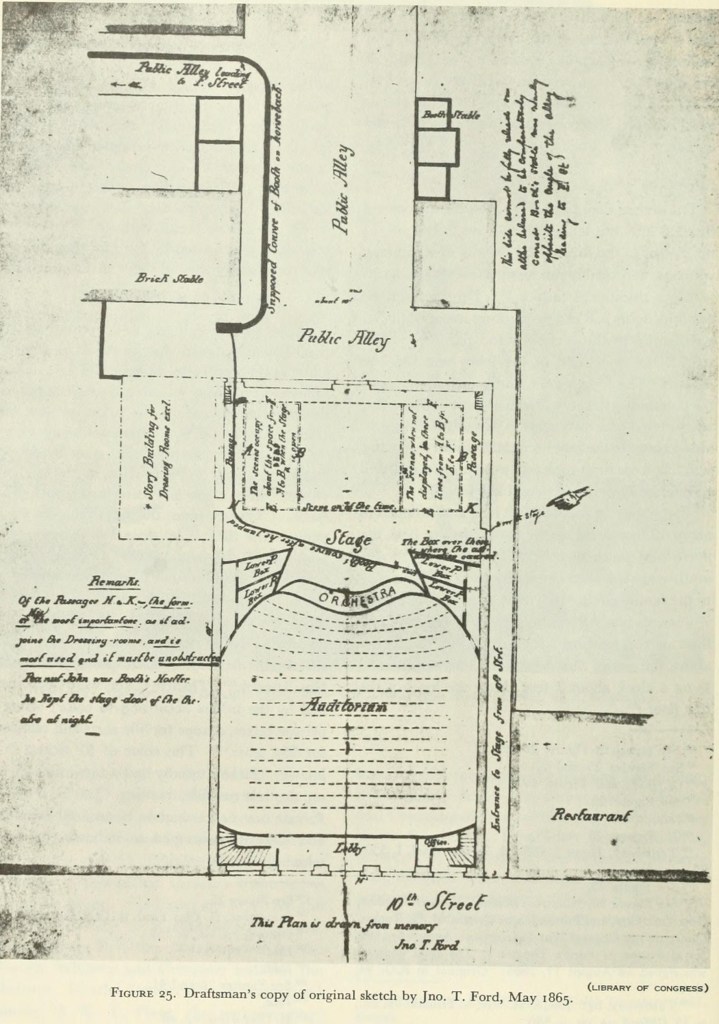 Public Alley leading
to F. Street
Booth Stable
Supposed Course of Booth on horseback
Public Alley
This side cannot be fully relied on
altho believed to be comparatively
correct Booth's stable was nearly
opposite the angle of the alley
leading to F St)
Brick Stable
about 10
Public Alley
4 Story Building for
Dressing Rooms excl.
Passage
F
The scenes occupy
about the space from
A to B, when the Stage
is open
E
F
The Scenes when not
displayed, in these
lines from A to B, for
E & F
Passage
E
K
Scene on 1st the time
Stage
Booth's Course after he jumped
The Box over them
where the as-
Lower P
Box
Lower P
Box
Lower P
Box
Lower P
Box
ORCHESTRA
Remarks.
Of the Passages H. & K.—, the form-
er is the most important one, as it ad-
joins the Dressing-rooms, and is
most used and it must be unobstructed.
Peanut John was Booth's Hostler
he Kept the stage-door of the the-
atre at night.
Auditorium
Entrance to Stage from 10th Strt.
Restaurant
Lobby
Office.
10th Street
This Plan is drawn from memory
Jno T. Ford
(LIBRARY OF CONGRESS)
FIGURE 25. Draftsman's copy of original sketch by Jno. T. Ford, May 1865.